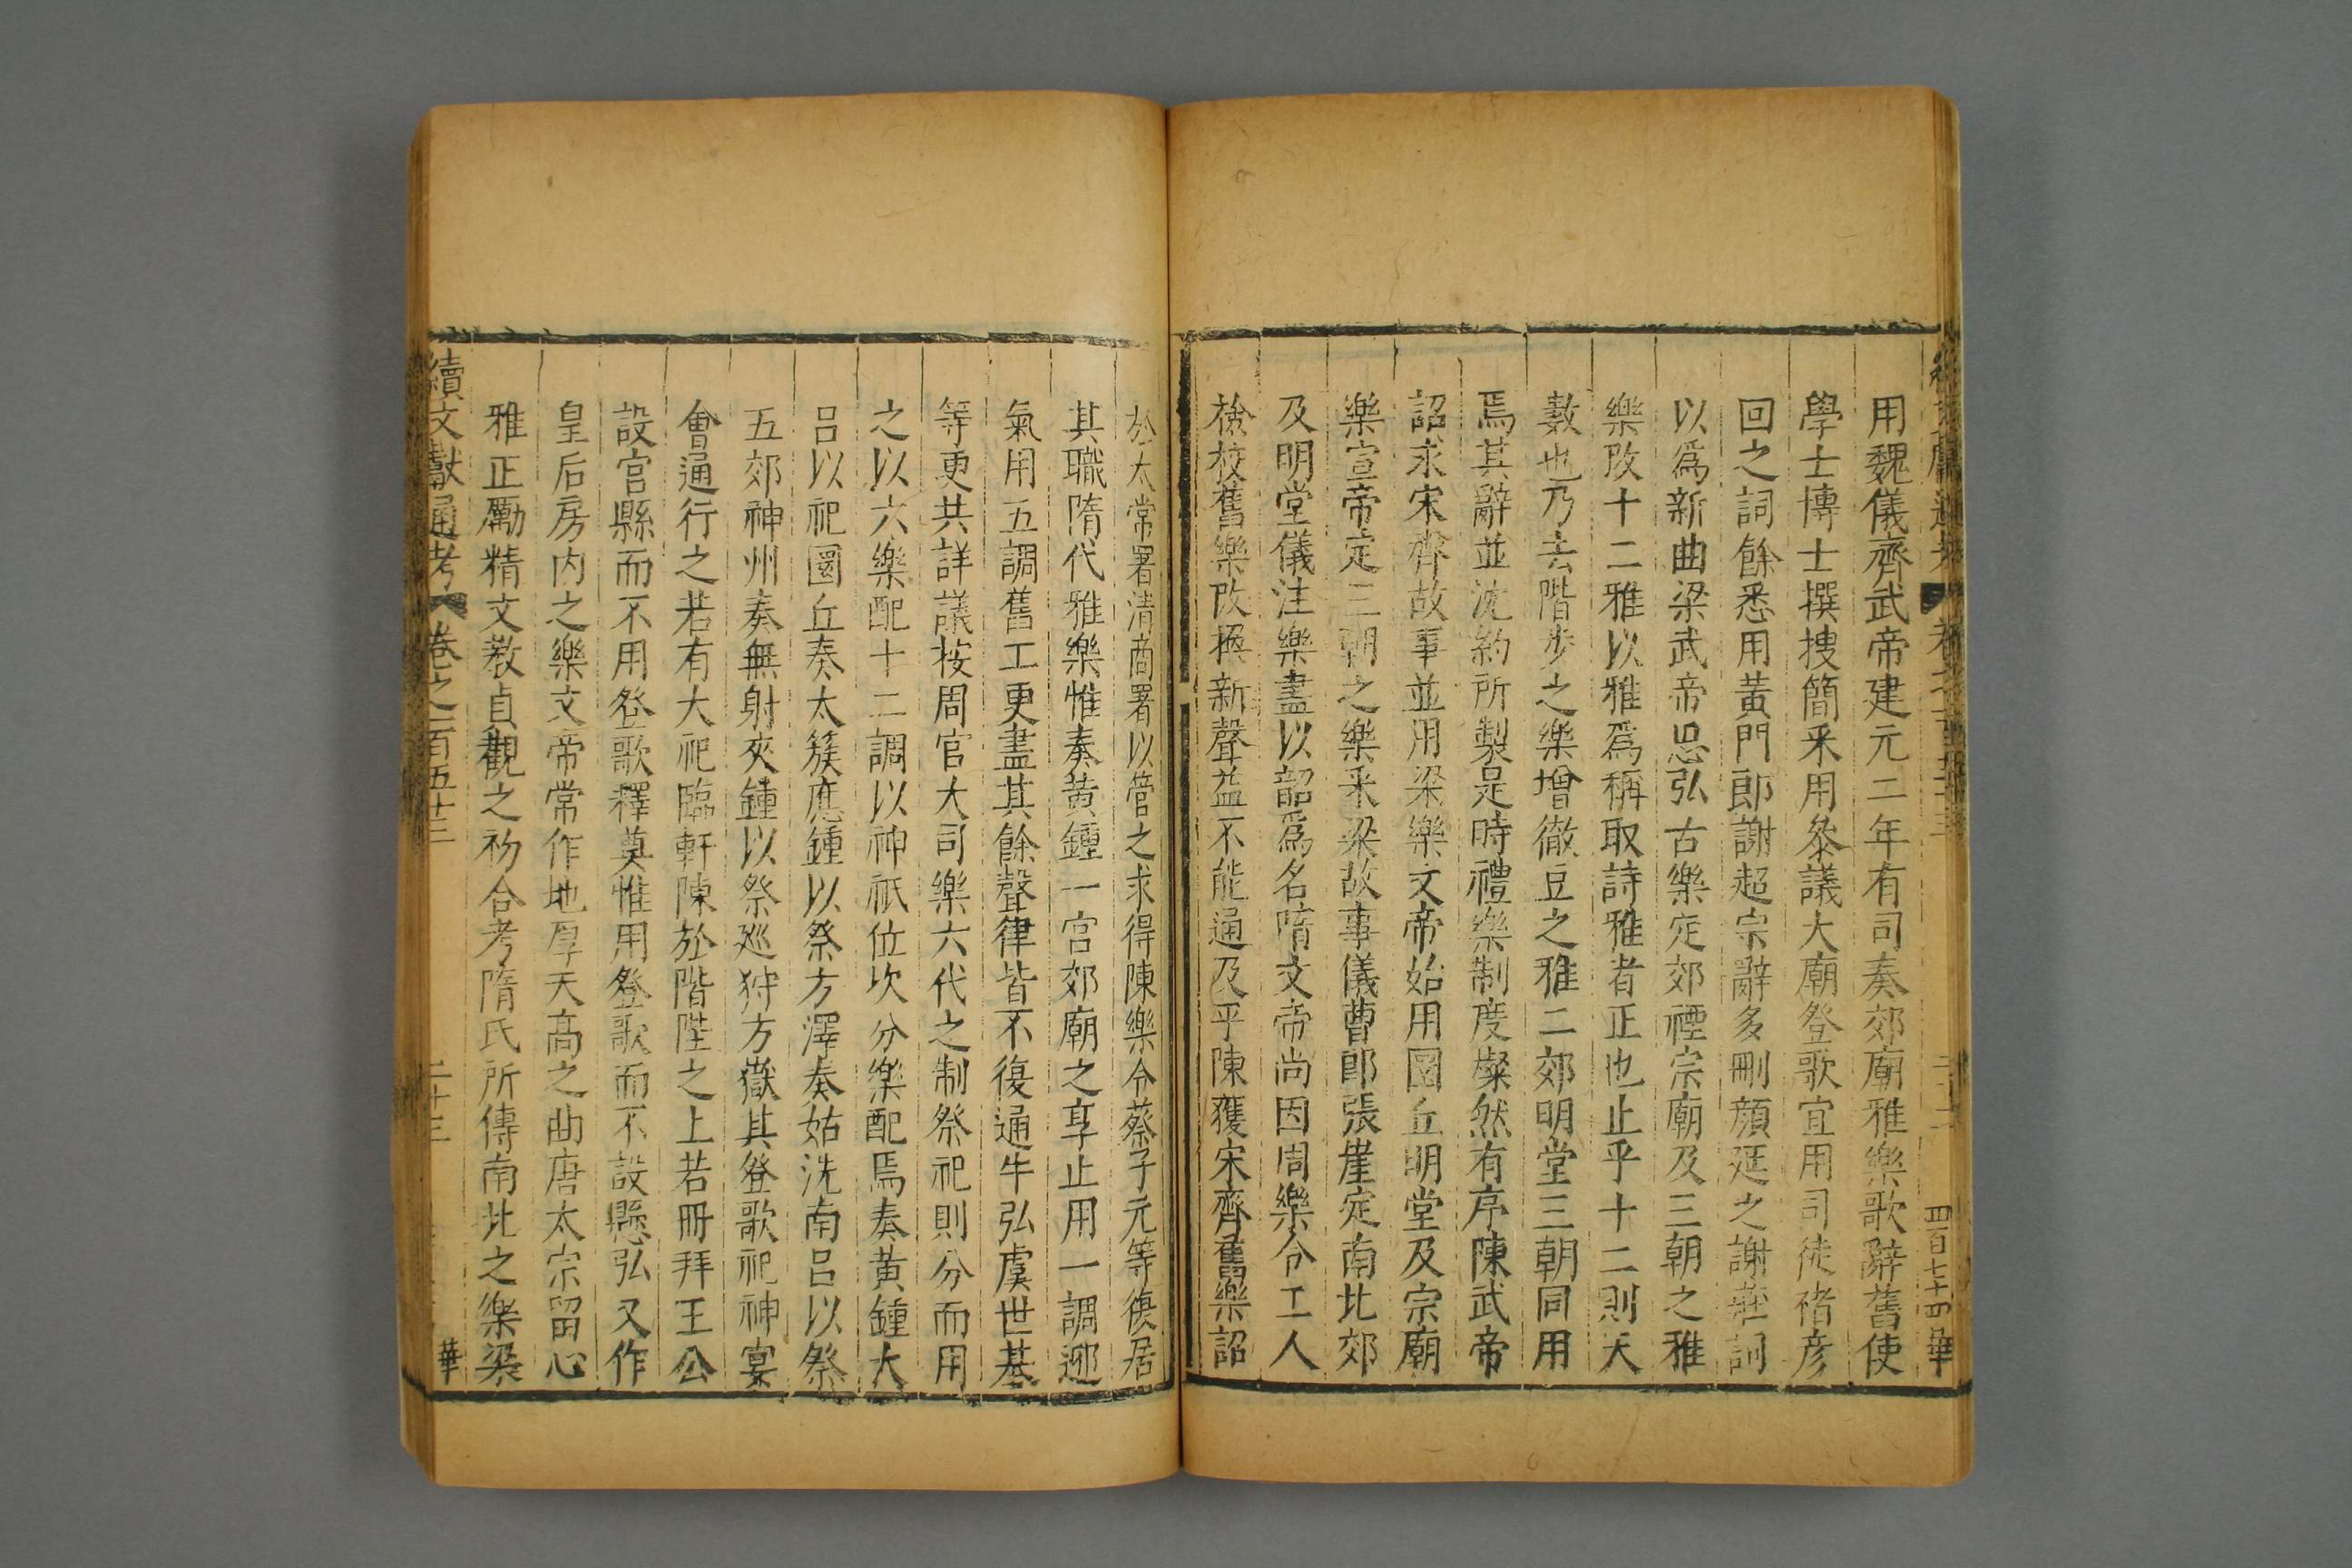 用魏儀齊武帝建元二年有司奏郊廟雅樂歌辭舊使
學士博士撰搜簡采用叅議大廟登歌宜用司徒禇彦
回之詞餘悉用黃門郎謝超宗辭多刪顔延之謝莊詞
以爲新曲梁武帝思弘古樂定郊禋宗廟及三朝之雅
樂改十二雅以雅爲稱取詩雅者正也止乎十二則天
數也乃去階步之樂增徹豆之雅二郊明堂三朝同用
焉其辭並沈約所製是時禮樂制度燦然有序陳武帝
詔求宋齊故事並用梁樂文帝始用圜丘明堂及宗廟
樂宣帝定三朝之樂采梁故事儀曹郎張崖定南北郊
及明堂儀注樂盡以韶爲名隋文帝尚因周樂令工人
檢校舊樂改換新聲益不能通及平陳獲宋齊舊樂詔
於太常署清商署以管之求得陳樂令蔡子元等復居
其職隋代雅樂惟奏黃鍾一宮郊廟之享止用一調迎
氣用五調舊工更盡其餘聲律皆不復通牛弘虞世基
等更共詳議按周官大司樂六代之制祭祀則分而用
之以六樂配十二調以神祇位坎分樂配焉奏黃鍾大
呂以祀圜丘奏太簇應鍾以祭方澤奏姑洗南呂以祭
五郊神州奏無射夾鍾以祭廵狩方嶽其登歌祀神宴
會通行之若有大祀臨軒陳於階陛之上若冊拜王公
設宮縣而不用登歌釋奠惟用登歌而不設懸弘又作
皇后房内之樂文帝常作地厚天高之曲唐太宗留心
雅正勵精文教貞觀之初合考隋氏所傳南北之樂梁
續文獻通考 卷之一百五十三 二十三 華
四百七十四 華